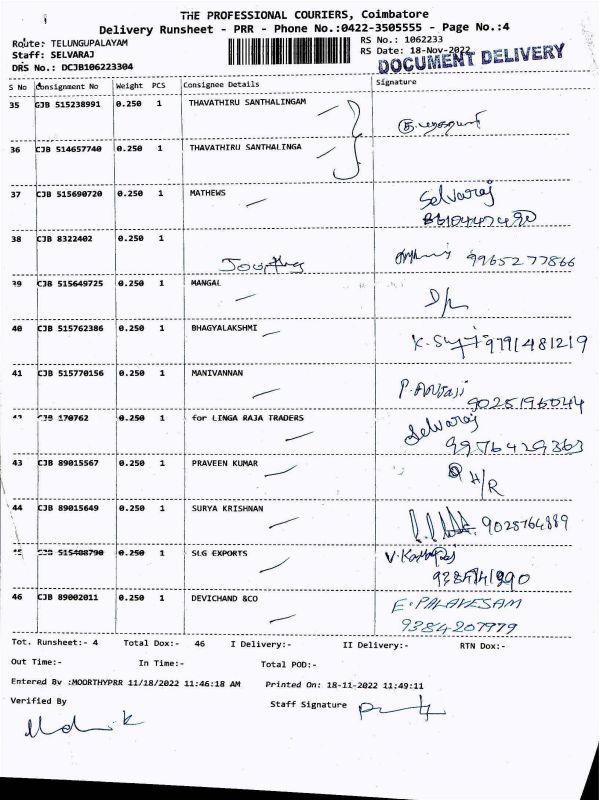 THE PROFESSIONAL COURIERS, Coimbatore
Delivery Runsheet - PRR - Phone No.:0422-3505555 - Page No.:4
Route: TELUNGUPALAYAM RS No.: 1062233
Staff: SELVARAJ RS Date: 18-Nov-2022
DRS No.: DCJB106223304 DOCUMENT DELIVERY
S No Consignment No Weight PCS Consignee Details Signature
35 GJB 515238991 0.250 1 THAVATHIRU SANTHALINGAM
36 CJB 514657740 0.250 1 THAVATHIRU SANTHALINGA
37 CJB 515690720 0.250 1 MATHEWS Selvaraj
38 CJB 8322402 0.250 1
99652 77866
39 CJB 515649725 0.250 1 MANGAL
40 CJB 515762386 0.250 1 BHAGYALAKSHMI
9791481219
41 CJB 515770156 0.250 1 MANIVANNAN
9025196044
170762 0.250 1 for LINGA RAJA TRADERS Selvaraj
9976429363
43 CJB 89015567 0.250 1 PRAVEEN KUMAR H/R
44 CJB 89015649 0.250 1 SURYA KRISHNAN 9025764889
515408790 0.250 1 SLG EXPORTS
46 CJB 89002011 0.250 1 DEVICHAND &CO E.PALAVESAM
9384207979
Tot. Runsheet:- 4 Total Dox:- 46 I Delivery:- II Delivery:- RTN Dox:-
Out Time:- In Time:- Total POD:-
Entered By :MOORTHYPRR 11/18/2022 11:46:18 AM Printed On: 18-11-2022 11:49:11
Verified By Staff Signature